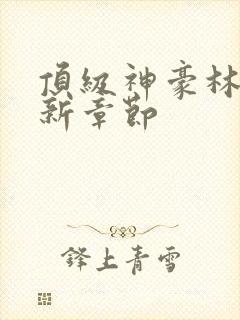 頂級神豪林
新章節
鋒上青雪